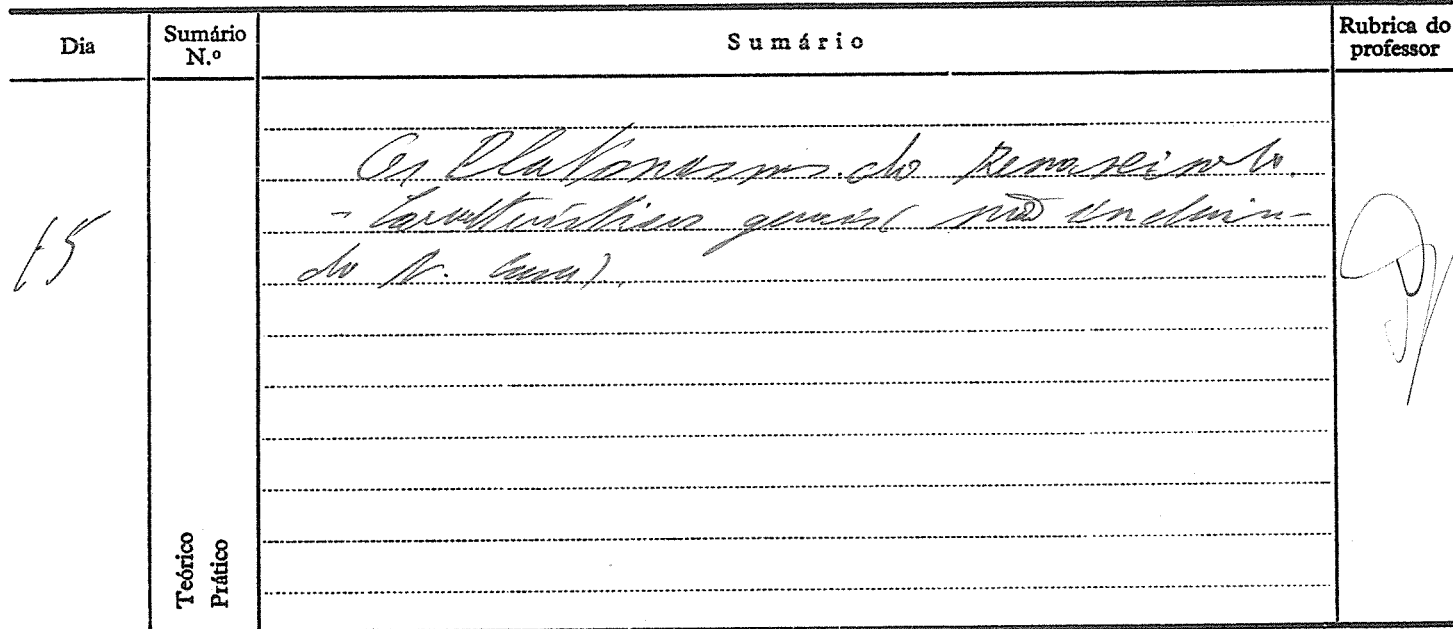 Dia
Sumário
N.º
Sumário
Rubrica do
professor
15
Os Platonismos do Renascimento.
- Características gerais (não incluin-
do N. Cusa).
Teórico
Prático